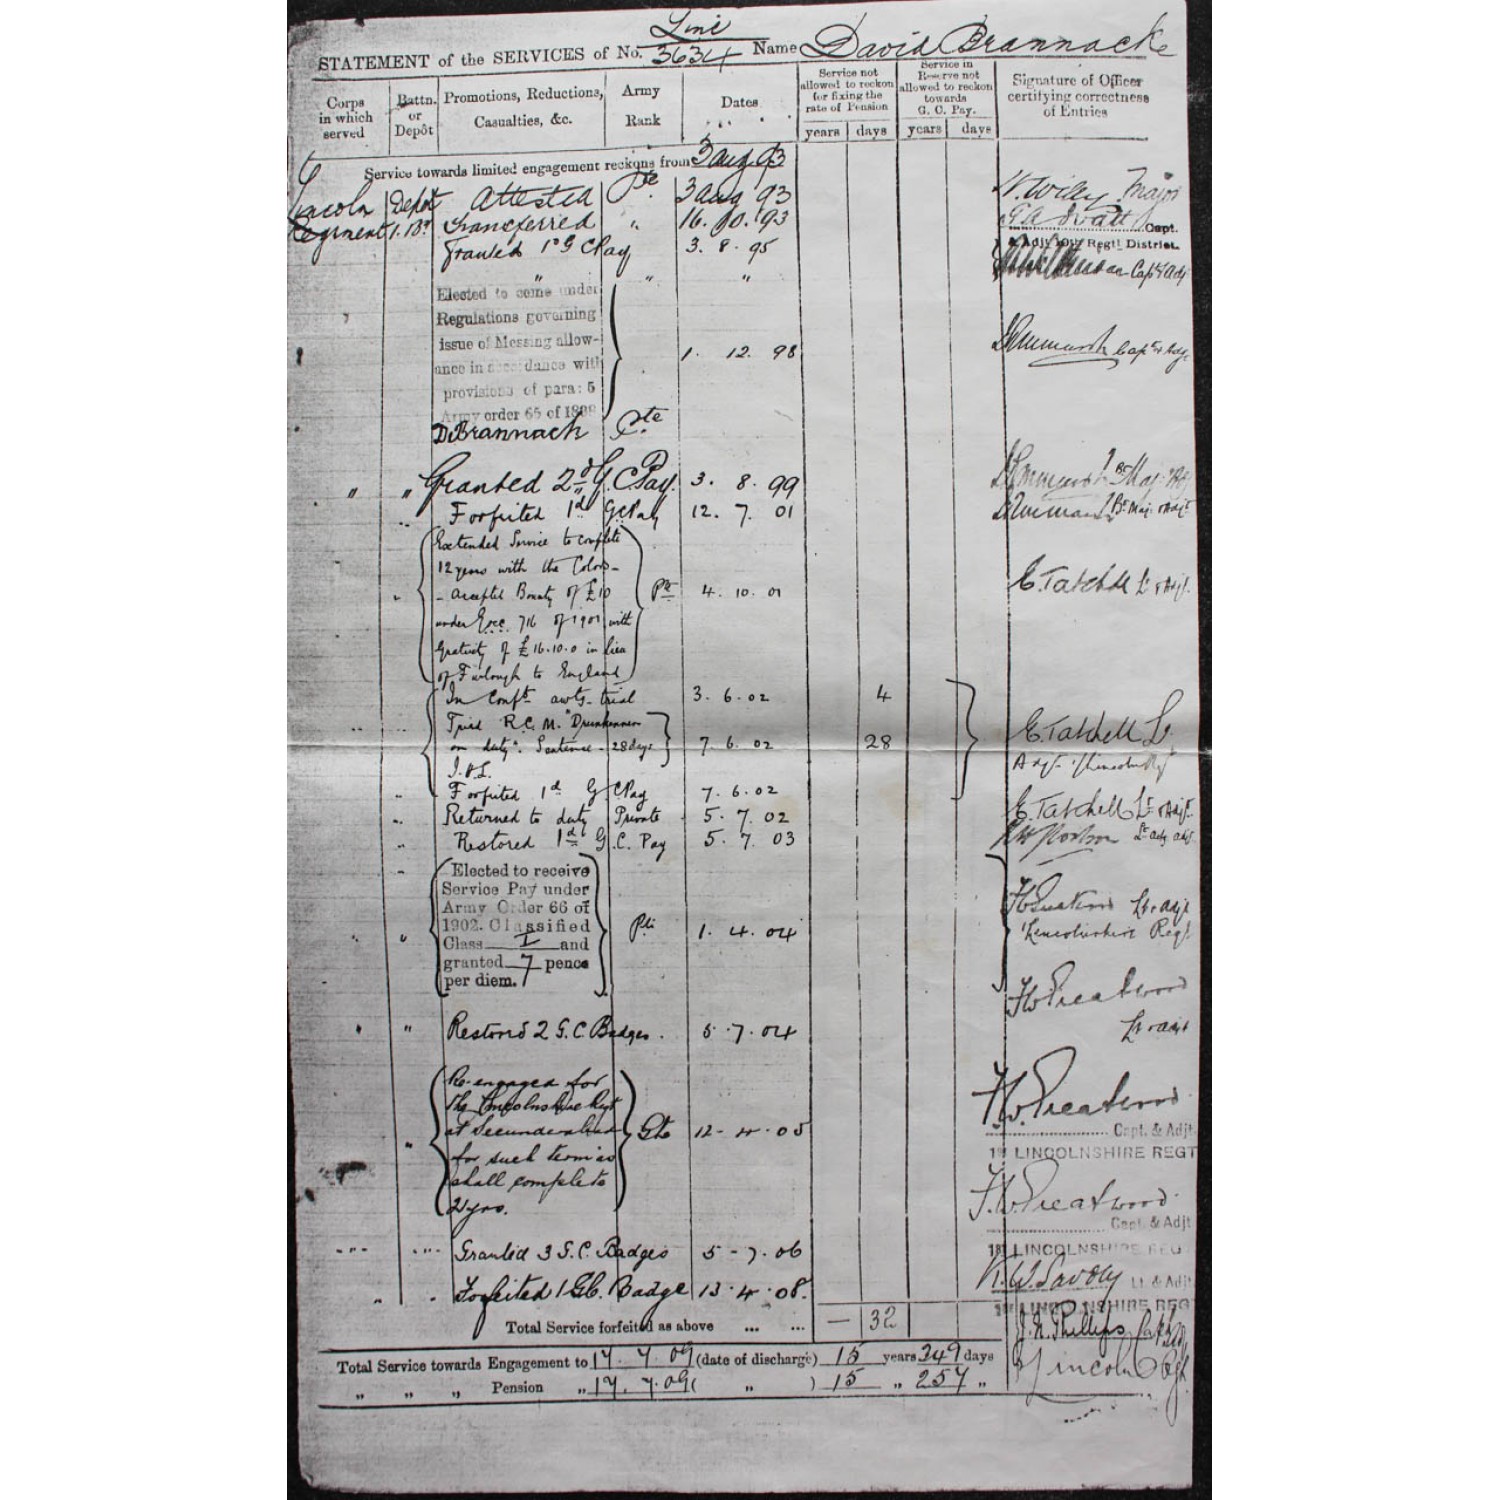 Line
STATEMENT of the SERVICES of No. 3634 Name David Brannack
Corps in which served
Battn. or Depôt
Promotions, Reductions, Casualties, &c.
Army Rank
Dates
Service not allowed to reckon for fixing the rate of Pension
years days
Service in Reserve not allowed to reckon towards G. C. Pay.
years days
Signature of Officer certifying correctness of Entries
Service towards limited engagement reckons from 3 Aug 93
Lincoln Depôt Attested Pte 3 Aug 93 Major
Regiment 1. Bn Transferred " 16. 10. 93 Capt.
& Adjt. 10th Regtl. District.
Granted 1st G C Pay 3. 8. 95
" " " Capt & Adj
Elected to come under
Regulations governing
issue of Messing allow-
ance in accordance with
provisions of para: 5
Army order 65 of 1898
1. 12. 98 Capt & Adjt
D. Brannack Pte
" " Granted 2nd G. C Pay. 3. 8. 99
" Forfeited 1d G C Pay 12. 7. 01
Extended Service to complete
12 years with the Colors-
- accepted Bounty of £10
under 716 of 1901 with
Gratuity of £16.10.0 in lieu
of Furlough to England
" Pte 4. 10. 01 E. Tatchell Lt & Adjt.
In Conft awtg trial 3. 6. 02 4
Tried R.C.M. "Drunkenness
on duty". Sentence - 28 days
I.H.L.
7. 6. 02 28 E. Tatchell Lt
" Forfeited 1d G C Pay 7. 6. 02
" Returned to duty Private 5. 7. 02 E. Tatchell Lt & Adjt.
" Restored 1d G. C. Pay 5. 7. 03
Elected to receive
Service Pay under
Army Order 66 of
1902. Classified
Class I and
granted 7 pence
per diem.
" " Pte 1. 4. 04 Lt & Adjt
Lincolnshire Regt.
F W Greatwood
" " Restored 2 G. C. Badges. 5. 7. 04 Lt & Adjt
Re-engaged for
the Lincolnshire Regt
at Secunderabad
for such term as
shall complete
21 yrs.
" Pte 12. 4. 05 F. W. Greatwood
Capt. & Adjt.
1st LINCOLNSHIRE REGT
F. W. Greatwood
Capt. & Adjt
" " Granted 3 G. C. Badges 5 - 7. 06 1st LINCOLNSHIRE REG
K. W. Savory Lt & Adjt
" " Forfeited 1 G.C. Badge 13. 4. 08. 1st LINCOLNSHIRE REG
Total Service forfeited as above ... ... — 32 Phillips Capt
Total Service towards Engagement to 17. 7. 09 (date of discharge) 15 years 349 days
" " " Pension " 17. 7. 09 ( " ) 15 " 257 " Lincoln Regt